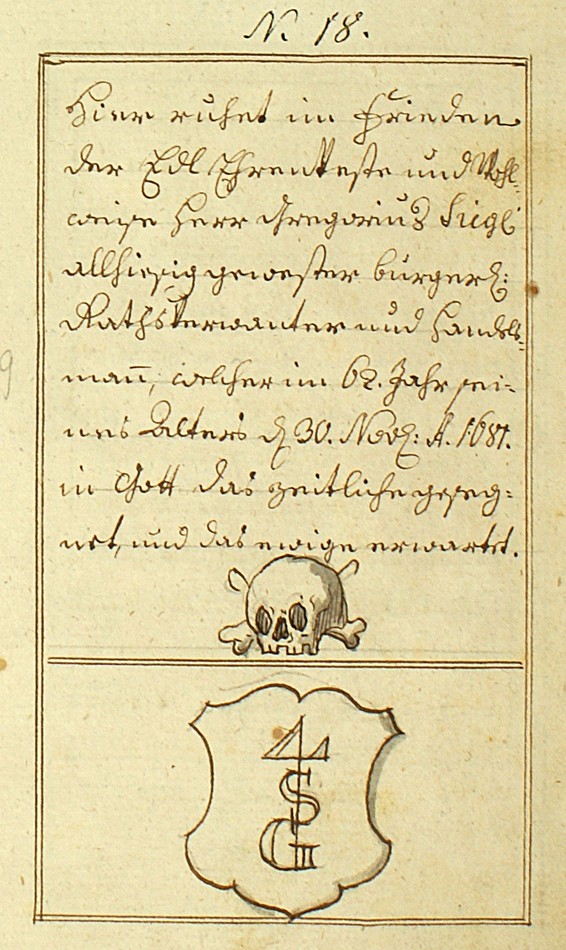 N. 18.
Hier ruhet im Frieden
der Edl Ehrenveste und Wohl-
weise Herr Gregorius Siegl
allhiesig gewester burgerl:
Raths Verwanter und Handels-
mañ, welcher im 62. Jahr sei-
nes Alters d. 30. Nov: A. 1687.
in Gott das zeitliche geseg-
net, und das ewige erwartet.
S
G